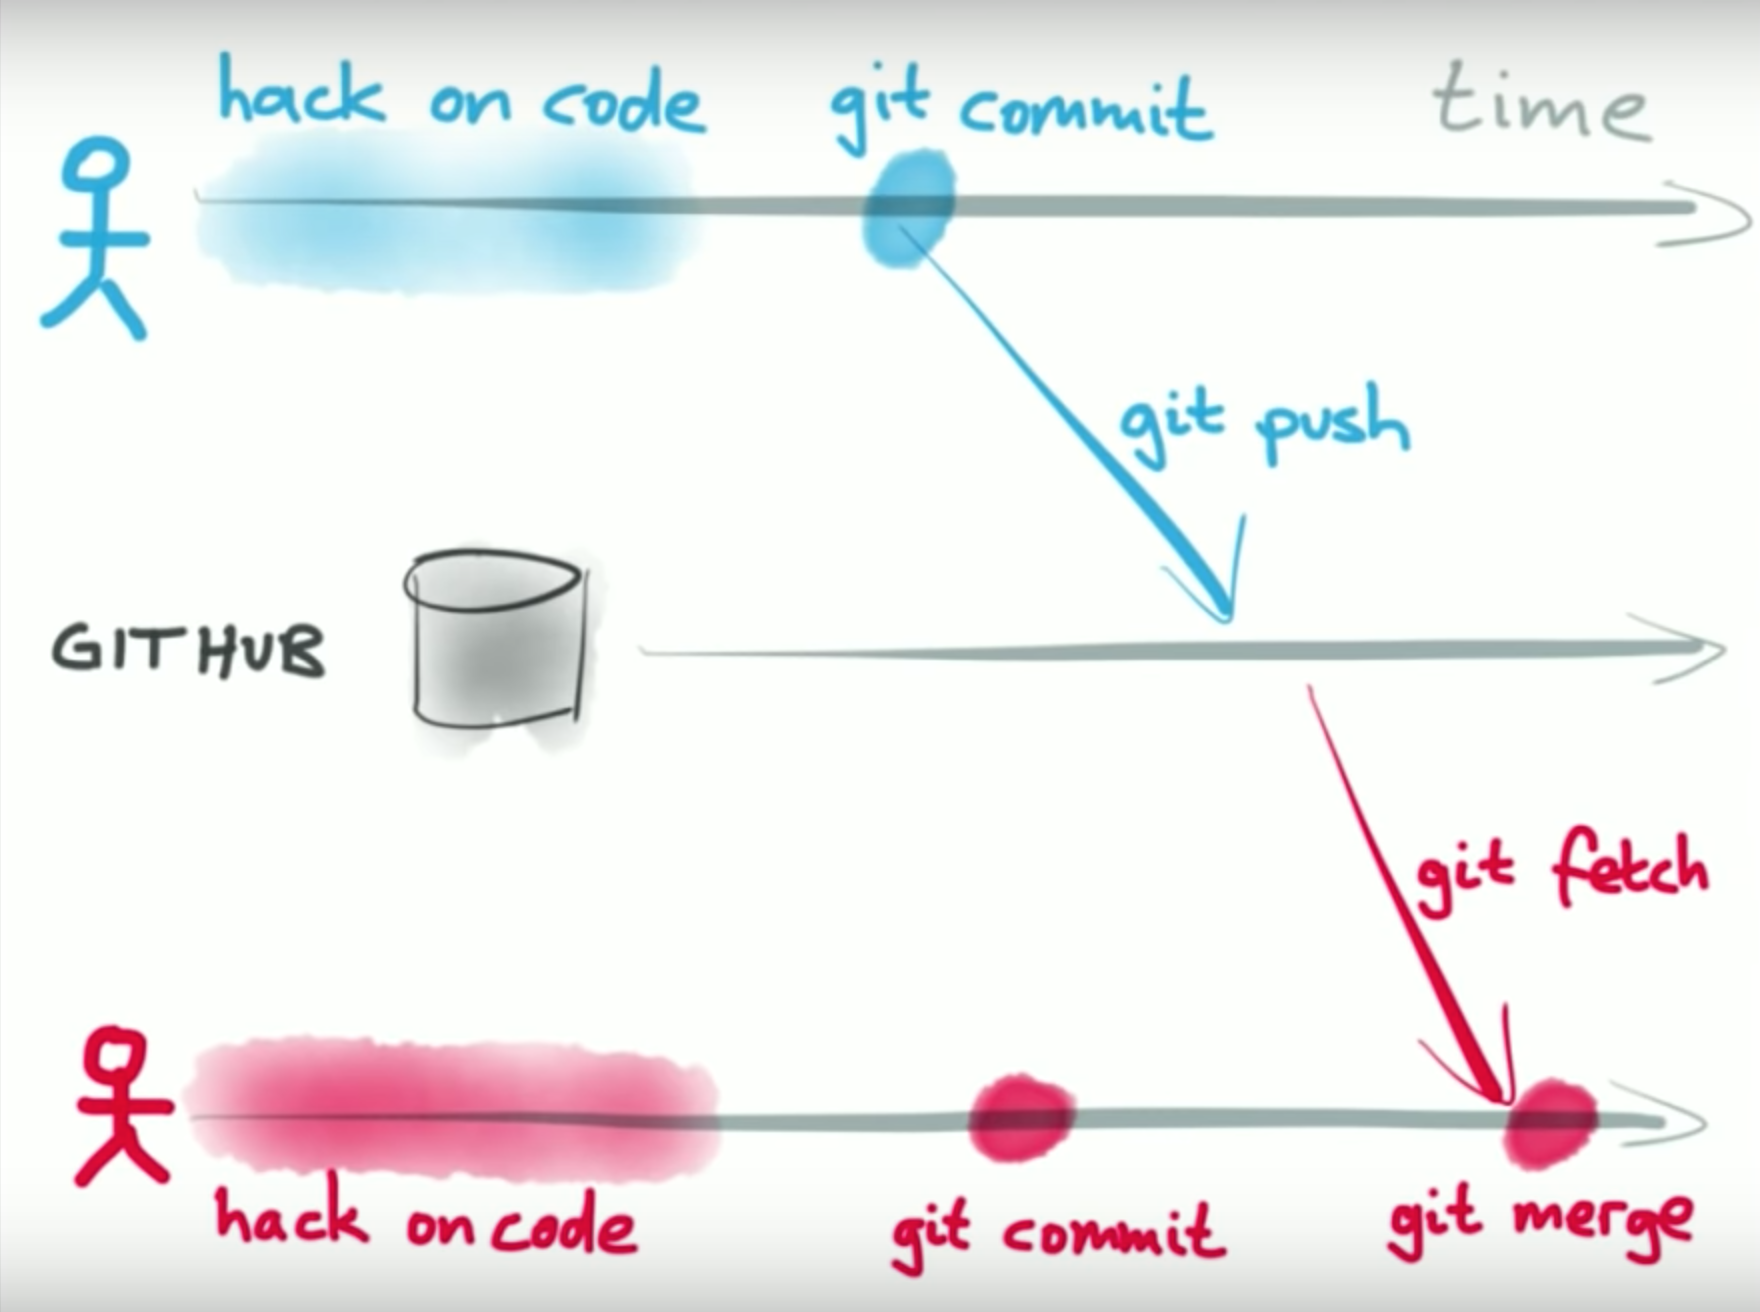 hack on code
git commit
time
git push
GITHUB
git fetch
hack on code
git commit
git merge